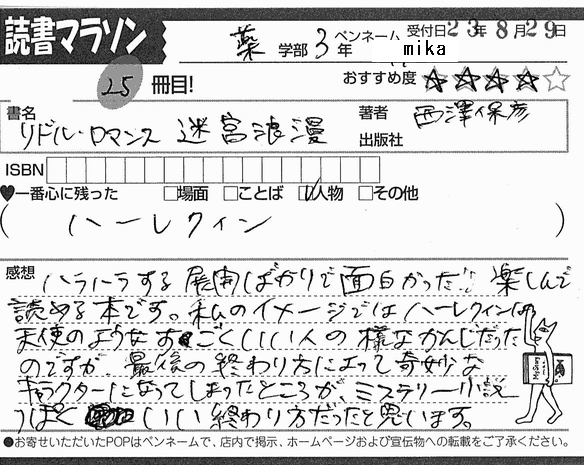 読書マラソン
薬 学部 3 年 ペンネーム mika 受付日 23年 8月 29日
25 冊目! おすすめ度 ★★★★☆
書名 リドル・ロマンス 迷宮浪漫 著者 西澤保彦
出版社
ISBN
♥一番心に残った □場面 □ことば ☑人物 □その他
( ハーレクイン )
感想 ハラハラする展開ばかりで面白かった!! 楽しんで
読める本です。私のイメージではハーレクインは
天使のようなすごくいい人の様なかんじだった
のですが、最後の終わり方によって奇妙な
キャラクターになってしまったところが、ミステリー小説
っぽく いい終わり方だったと思います。
●お寄せいただいたPOPはペンネームで、店内で掲示、ホームページおよび宣伝物への転載をご了承ください。